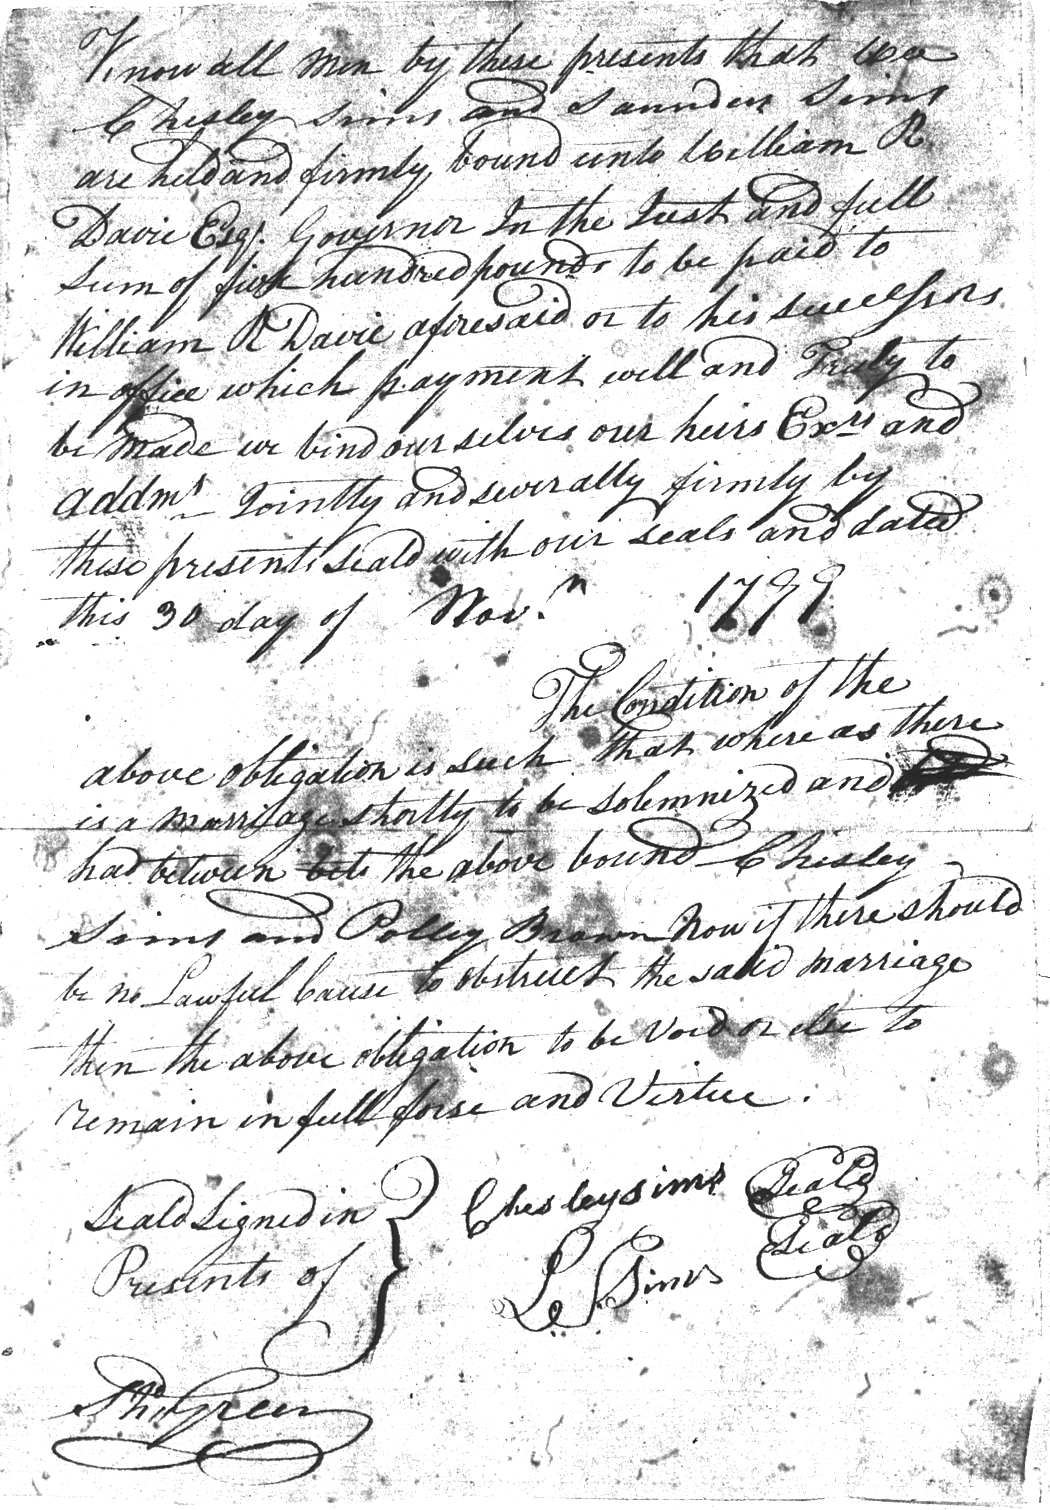 Know all men by these presents that We
Chesley Sims and Saunders Sims
are held and firmly bound unto William R
Davie Esqr. Governor In the Just and full
Sum of five hundred pounds to be paid to
William R Davie aforesaid or to his successors
in office which payment well and Truly to
be made we bind our selves our heirs Exrs and
addmrs Jointly and severally firmly by
these presents Seald with our seals and dated
this 30 day of Nov.n 1799
The Condition of the
above obligation is such that where as there
is a marriage shortly to be solemnized and
had between the above bound Chesley
Sims and Polley Brown Now if there should
be no Lawful Cause to obstruct the said marriage
then the above obligation to be Void or else to
remain in full forse and Virtue.
Seald Signed in Chesley sims Seal
Presents of L. Sims Seal
Green